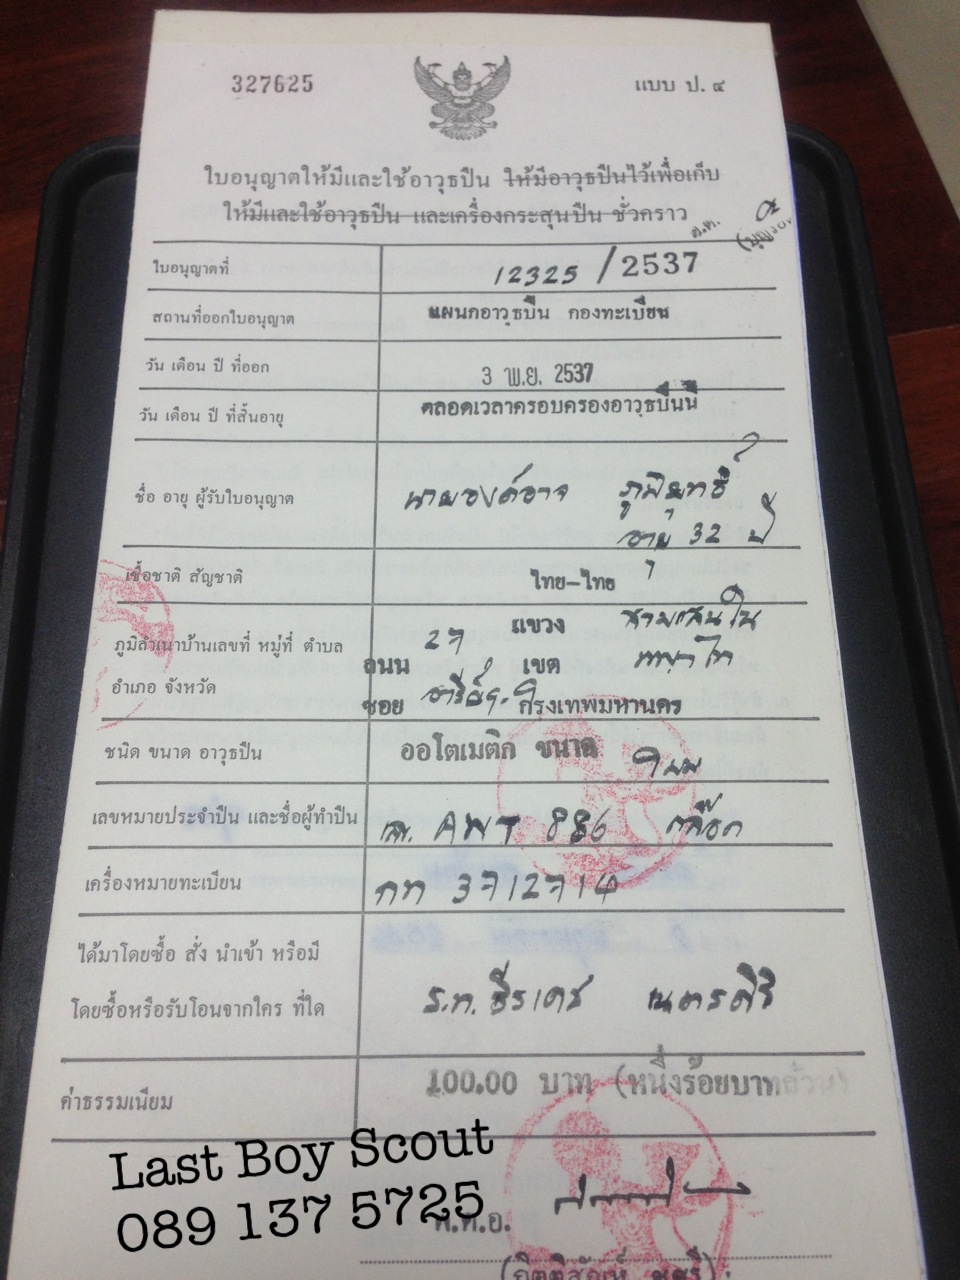 327625
แบบ ป. ๔
ใบอนุญาตให้มีและใช้อาวุธปืน ให้มีอาวุธปืนไว้เพื่อเก็บ
ให้มีและใช้อาวุธปืน และเครื่องกระสุนปืน ชั่วคราว
ใบอนุญาตที่ 12325/2537
สถานที่ออกใบอนุญาต แผนกอาวุธปืน กองทะเบียน
วัน เดือน ปี ที่ออก 3 พ.ย. 2537
วัน เดือน ปี ที่สิ้นอายุ ตลอดเวลาครอบครองอาวุธปืนนี้
ชื่อ อายุ ผู้รับใบอนุญาต นายองค์อาจ ภูมิยุทธิ์
อายุ 32 ปี
เชื้อชาติ สัญชาติ ไทย-ไทย
แขวง สามเสนใน
ภูมิลำเนาบ้านเลขที่ หมู่ที่ ตำบล 27
ถนน เขต พญาไท
อำเภอ จังหวัด
ซอย อารีย์ กรุงเทพมหานคร
ชนิด ขนาด อาวุธปืน ออโตเมติก ขนาด 9 มม
เลขหมายประจำปืน และชื่อผู้ทำปืน ลข. AWT 886 กล๊อก
เครื่องหมายทะเบียน กท 3712714
ได้มาโดยซื้อ สั่ง นำเข้า หรือมี
โดยซื้อหรือรับโอนจากใคร ที่ใด ร.ท. ธีรเดช เนตรศิริ
ค่าธรรมเนียม 100.00 บาท (หนึ่งร้อยบาทถ้วน)
Last Boy Scout
089 137 5725
พ.ต.อ.